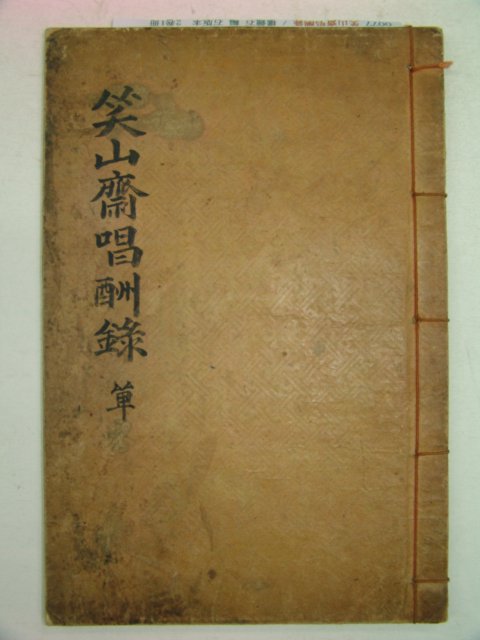 笑山齋唱酬錄
單